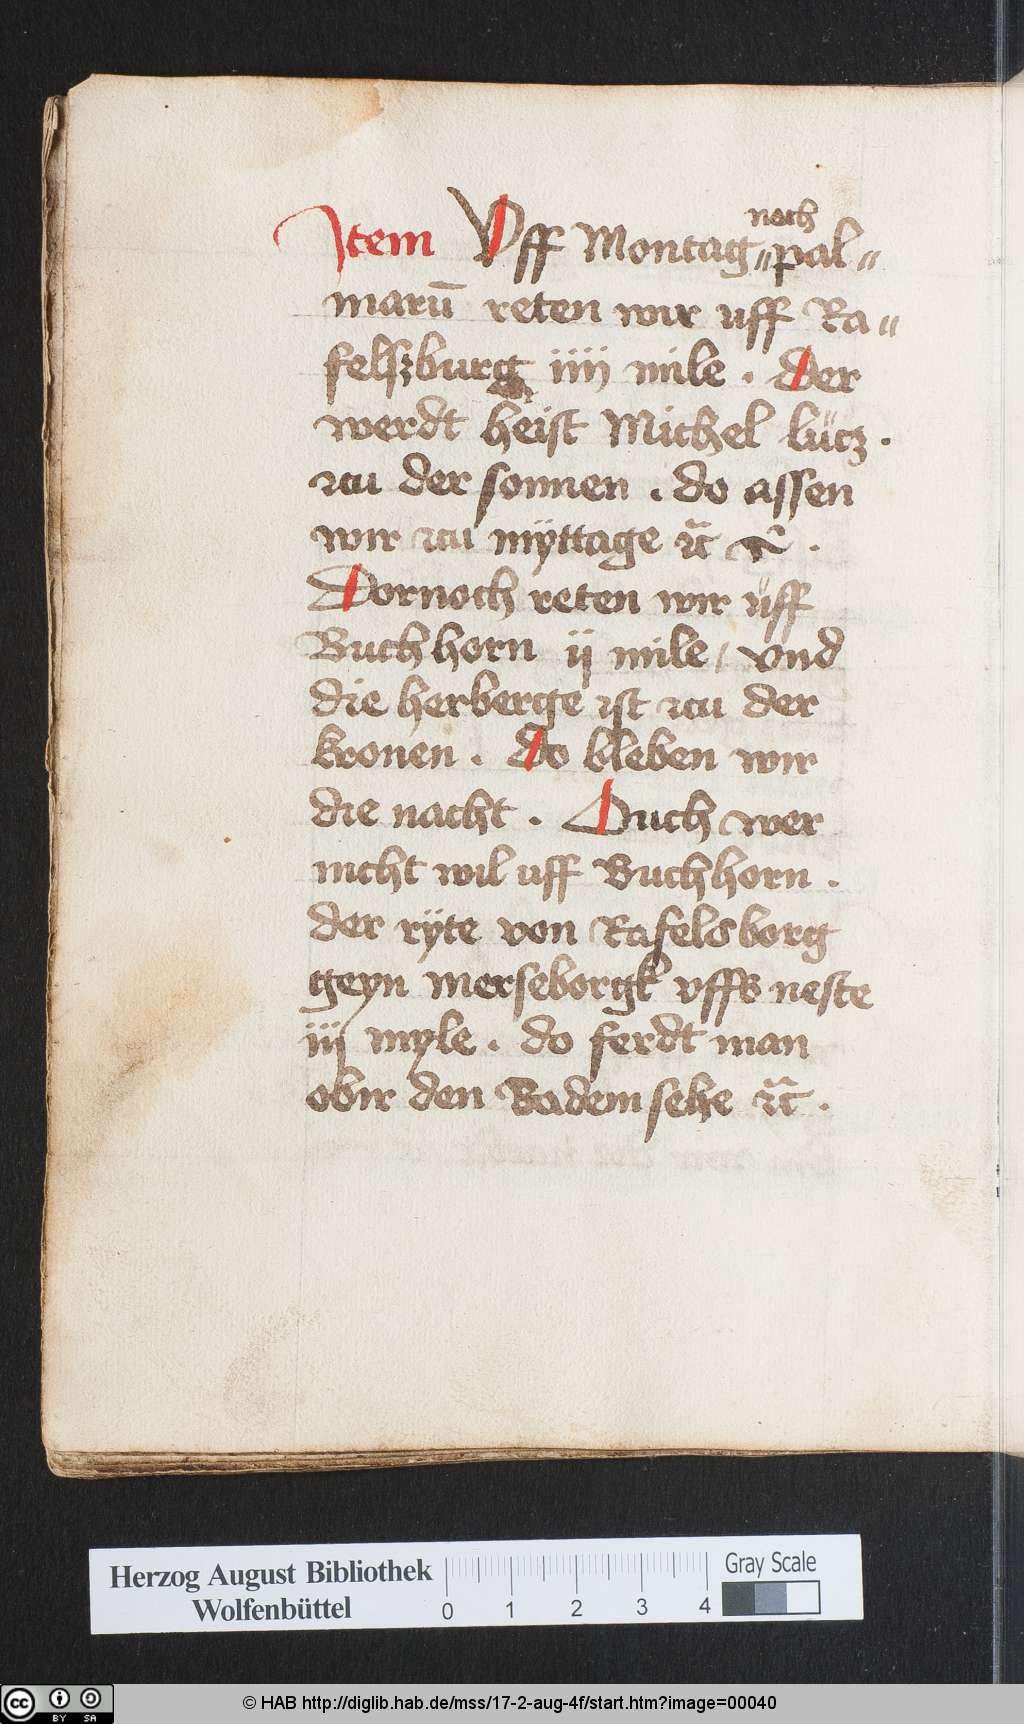 Item Vff Montag nach pal〃
marū reten wir uff Ra〃
felszburg iiij mile . Der
werdt heist Michel lücz .
zcu der sonnen . do assen
wir zcu mÿttage ⁊c̃ ⁊c̃ .
Dornoch reten wir uff
Buchhorn ij mile / vnd
die herberge ist zcu der
kronen . Do bleben wir
die nacht . Ouch wer
nicht wil uff Buchhorn .
der rÿte von Rafelsborg
geyn merseborgk vffs neste
iij myle . do ferdt man
obir den Badem sehe ⁊c̃ .
Herzog August Bibliothek
Wolfenbüttel
0 1 2 3 4
Gray Scale
cc BY SA
© HAB http://diglib.hab.de/mss/17-2-aug-4f/start.htm?image=00040